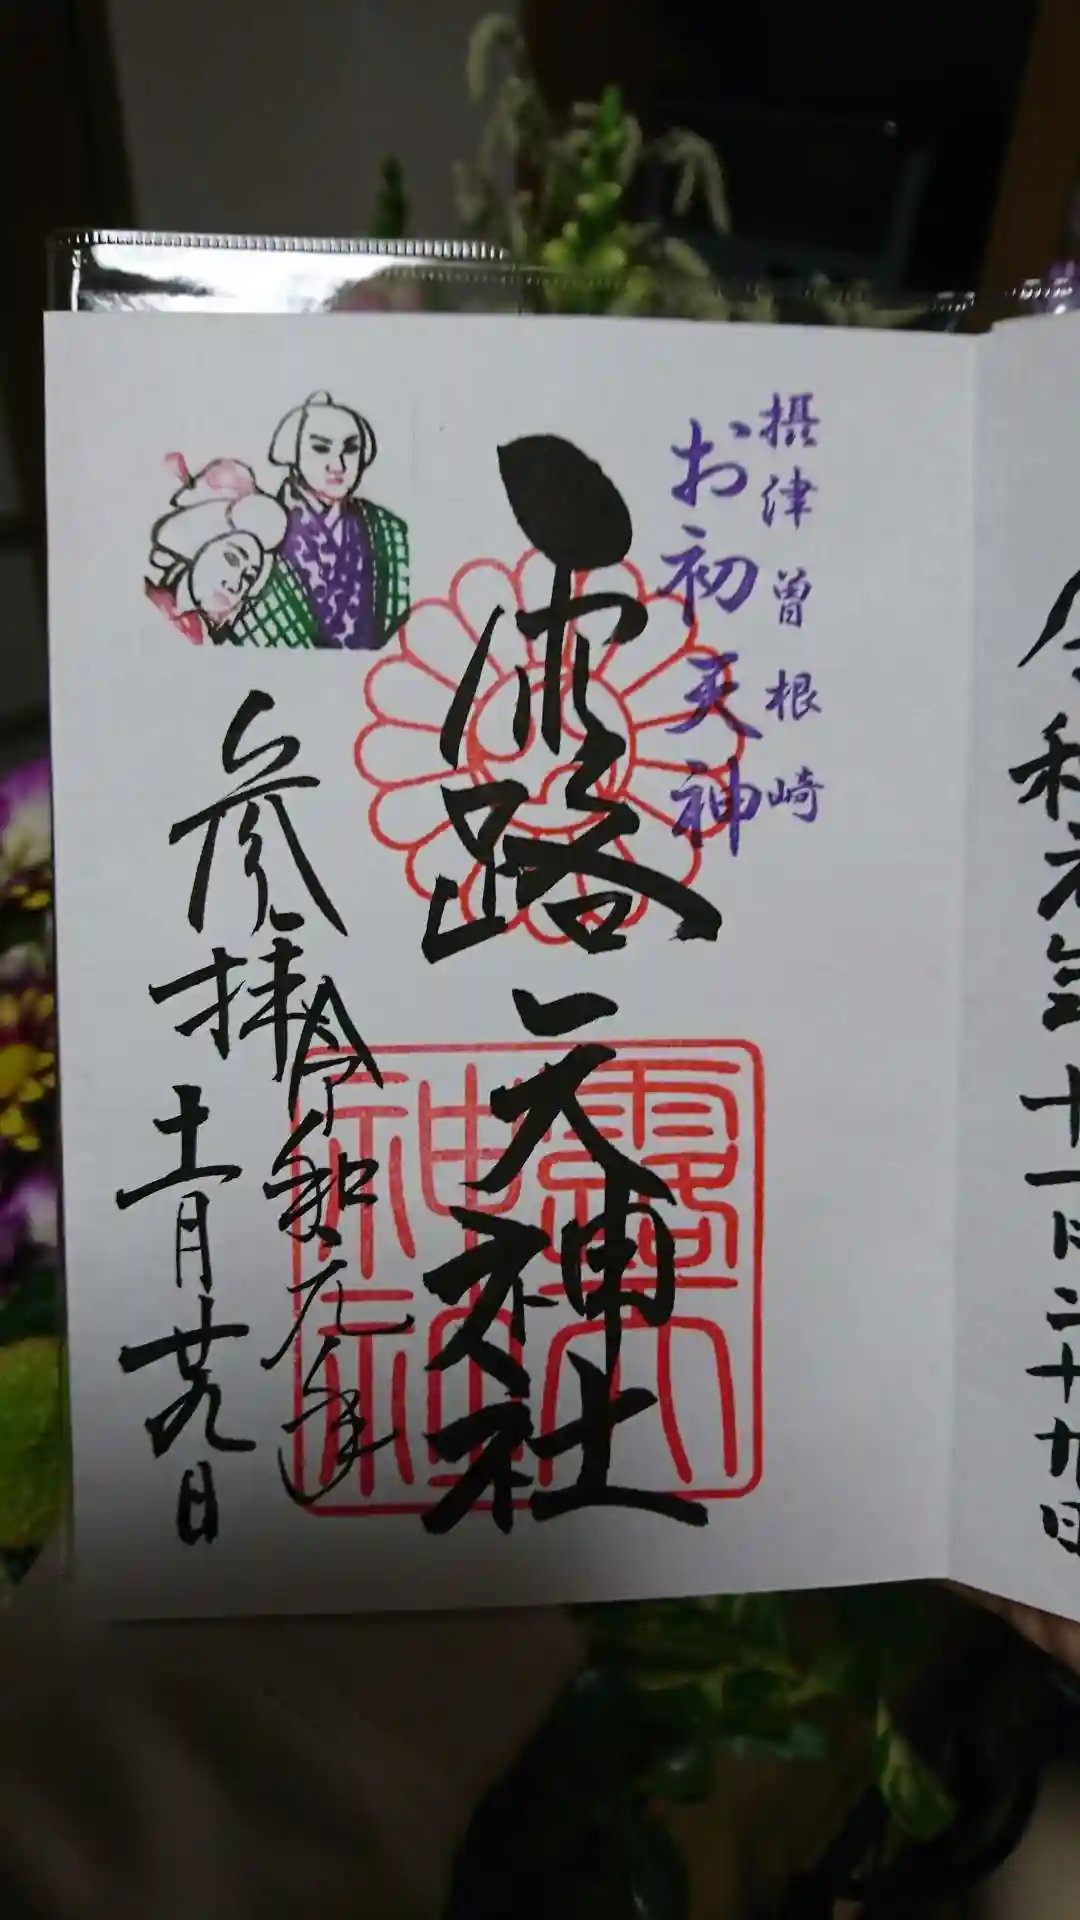 令和元年十一月二十九日
摂津曽根崎
お初天神
露天神社
露天神社
令和元年
参拝
十一月廿九日